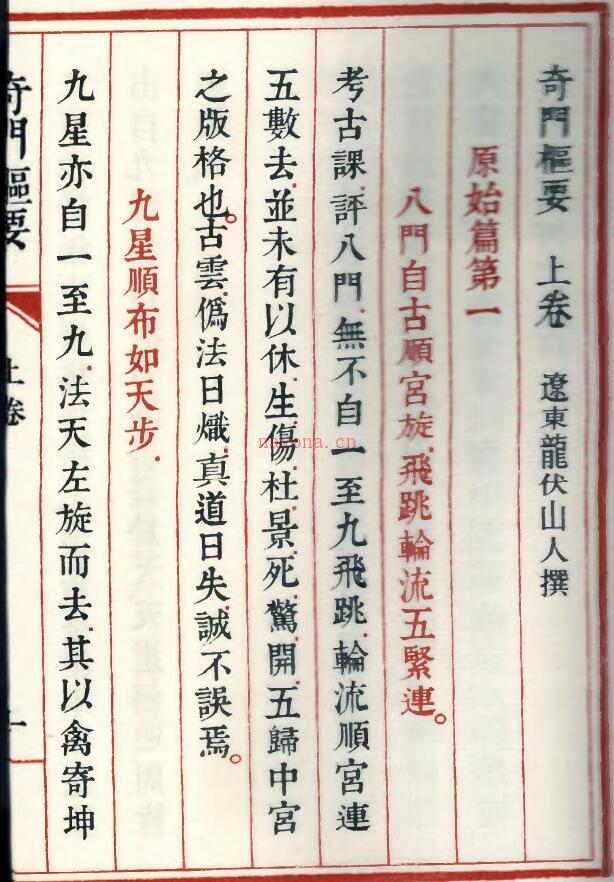 奇門樞要　上卷　遼東龍伏山人撰
原始篇第一
八門自古順宮旋.飛跳輪流五緊連。
考古課.評八門.無不自一至九飛跳.輪流順宮連
五數去.並未有以休.生.傷.杜.景.死.驚.開.五歸中宮
之版格也。古雲.僞法日熾.真道日失.誠不誤焉。
九星順布如天步.
九星亦自一至九.法天左旋而去.其以禽寄坤
奇門樞要
上卷
一
nayona.cn